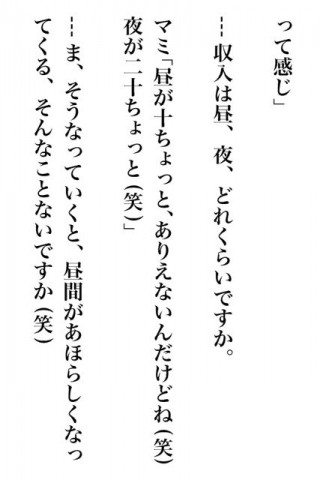 って感じ」
--- 収入は昼、夜、どれくらいですか。
マミ「昼が十ちょっと、ありえないんだけどね(笑)
夜が二十ちょっと(笑)」
--- ま、そうなっていくと、昼間があほらしくなっ
てくる、そんなことないですか(笑)